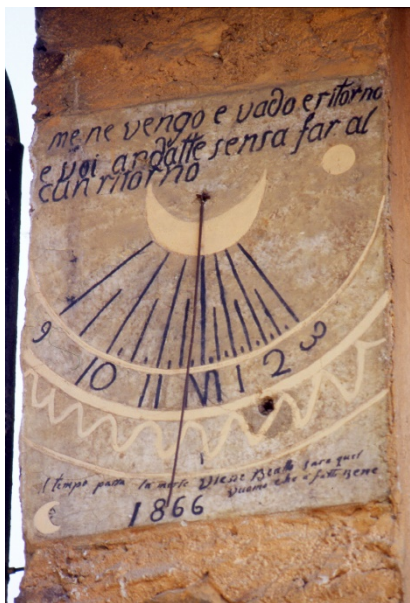 me ne vengo e vado e ritorno
e voi andatte sensa far al
cun ritorno
9 10 11 M 1 2 3
il tempo passa la morte viene Beatto sara quel
Vuomo che a fatt Bene
1866